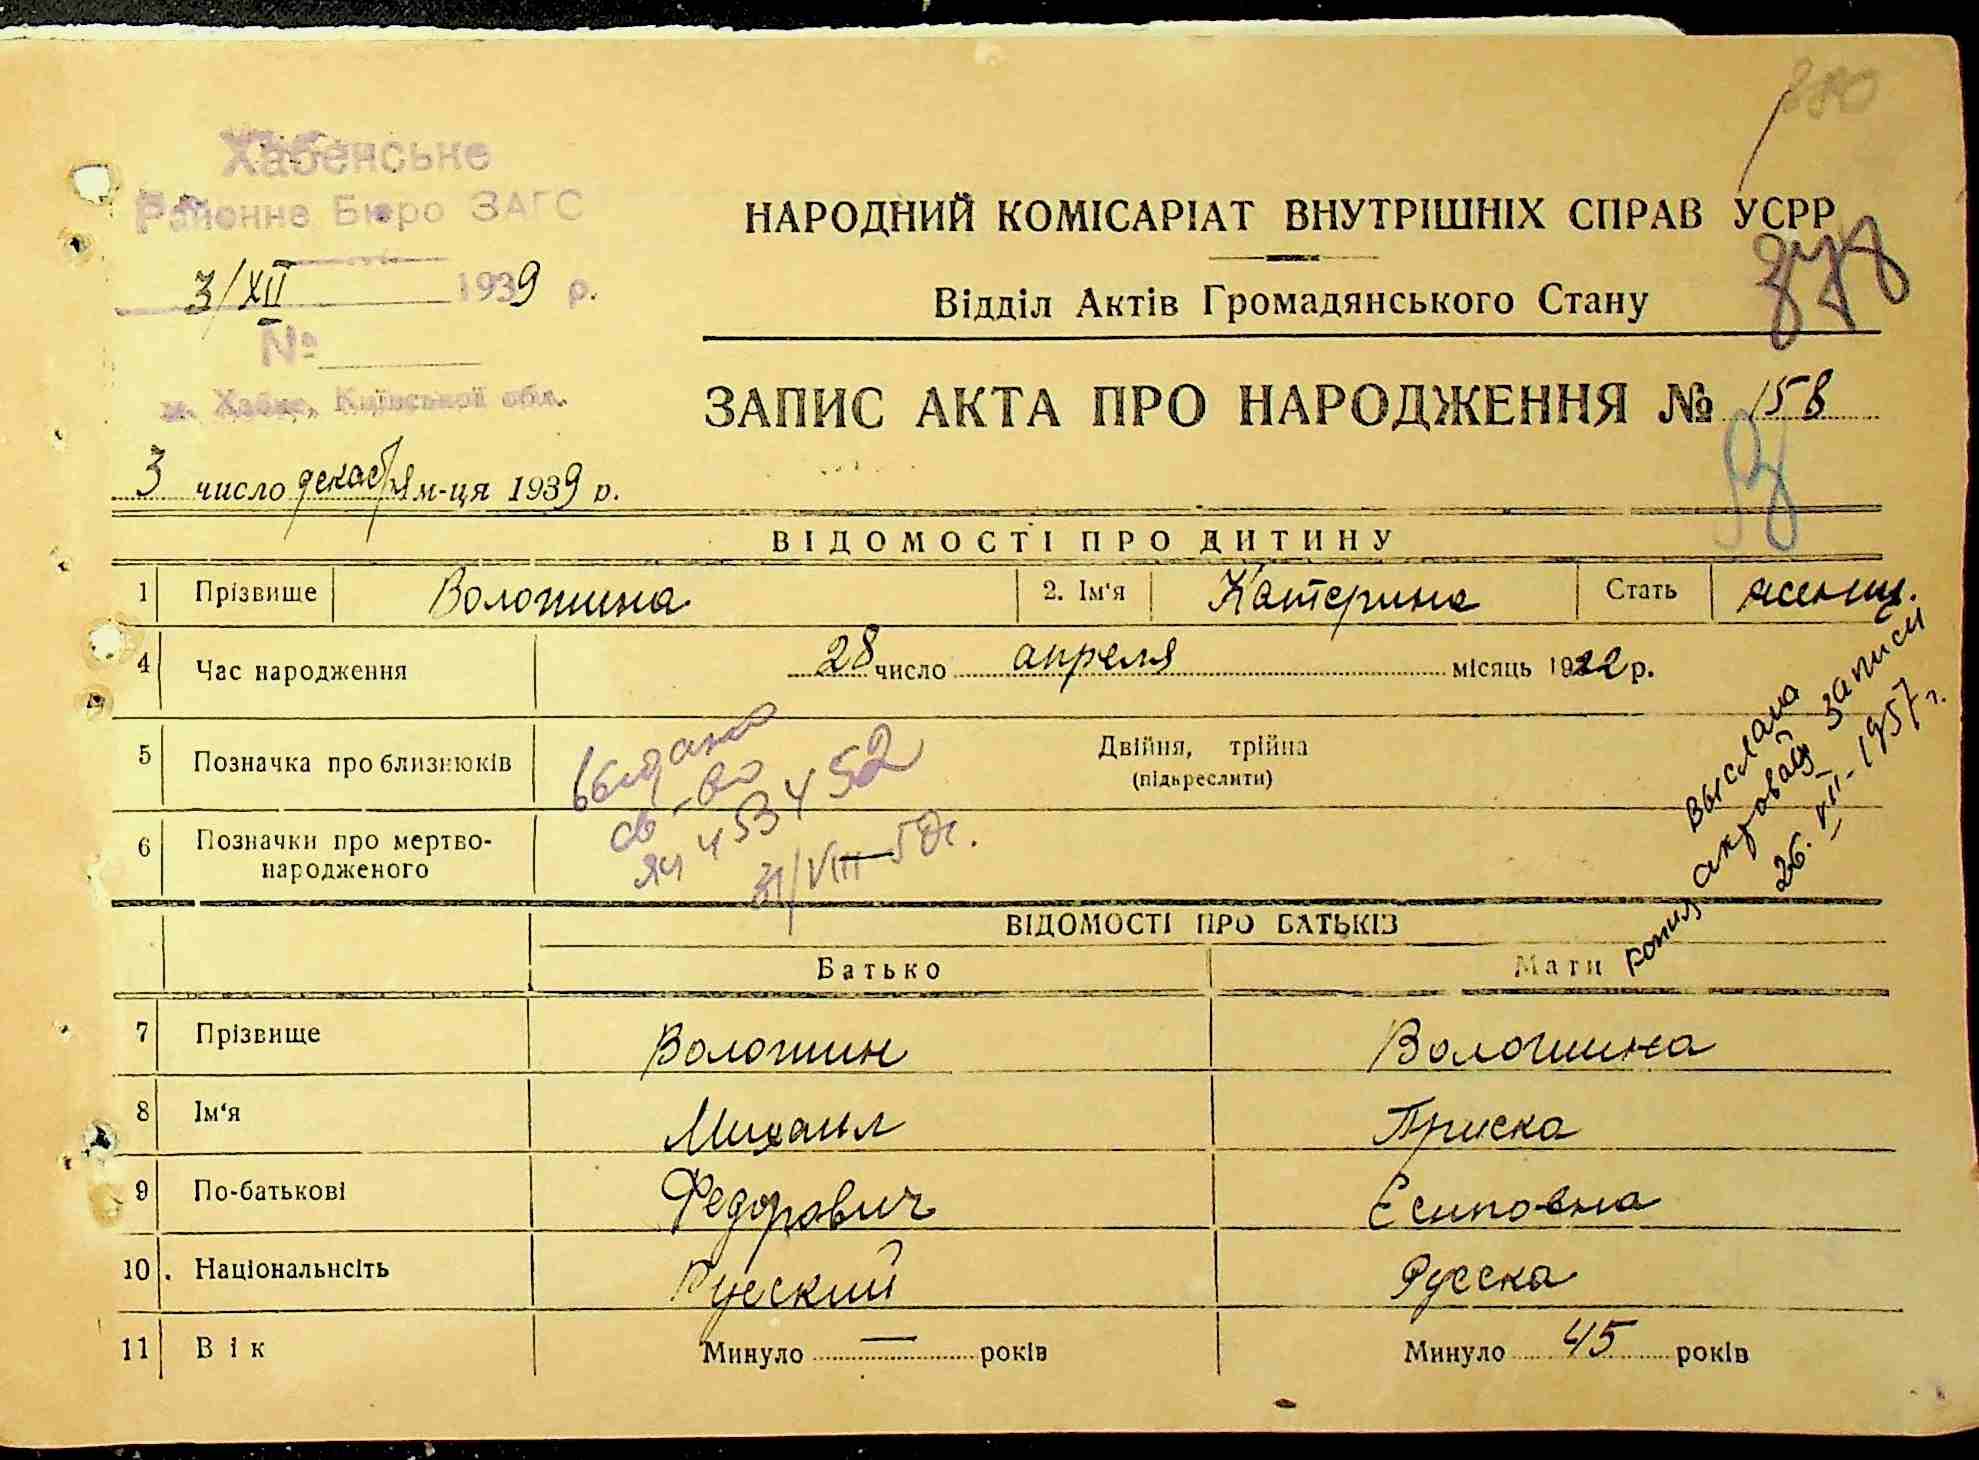 880
Хабенське
Районне Бюро ЗАГС
3/XII 1939 р.
№
м. Хабне, Київської обл.
НАРОДНИЙ КОМІСАРІАТ ВНУТРІШНІХ СПРАВ УСРР
Відділ Актів Громадянського Стану
ЗАПИС АКТА ПРО НАРОДЖЕННЯ № 158
3 число декабря м-ця 1939 р.
ВІДОМОСТІ ПРО ДИТИНУ
1 Прізвище Волошина 2. Ім'я Катерина Стать женщ.
4 Час народження 28 число апреля місяць 1922 р.
5 Позначка про близнюків Двійня, трійна
(підкреслити)
выдано
св-во
453452
31/VIII-50г.
6 Позначки про мертво-
народженого
выслана
копия актовой записи
26.VII-1957 г.
ВІДОМОСТІ ПРО БАТЬКІВ
Батько Мати
7 Прізвище Волошин Волошина
8 Ім'я Михаил Приска
9 По-батькові Федорович Есиповна
10. Національнсіть Руский Русска
11 Вік Минуло — років Минуло 45 років